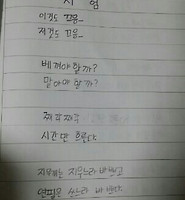 시 험
이것도 끄응_
저것도 끄응_
베껴야 할까?
말아야 할까?
째깍째깍
시간만 흐른다.
지우개는 지우느라 바쁘고
연필은 쓰느라 바쁘다.